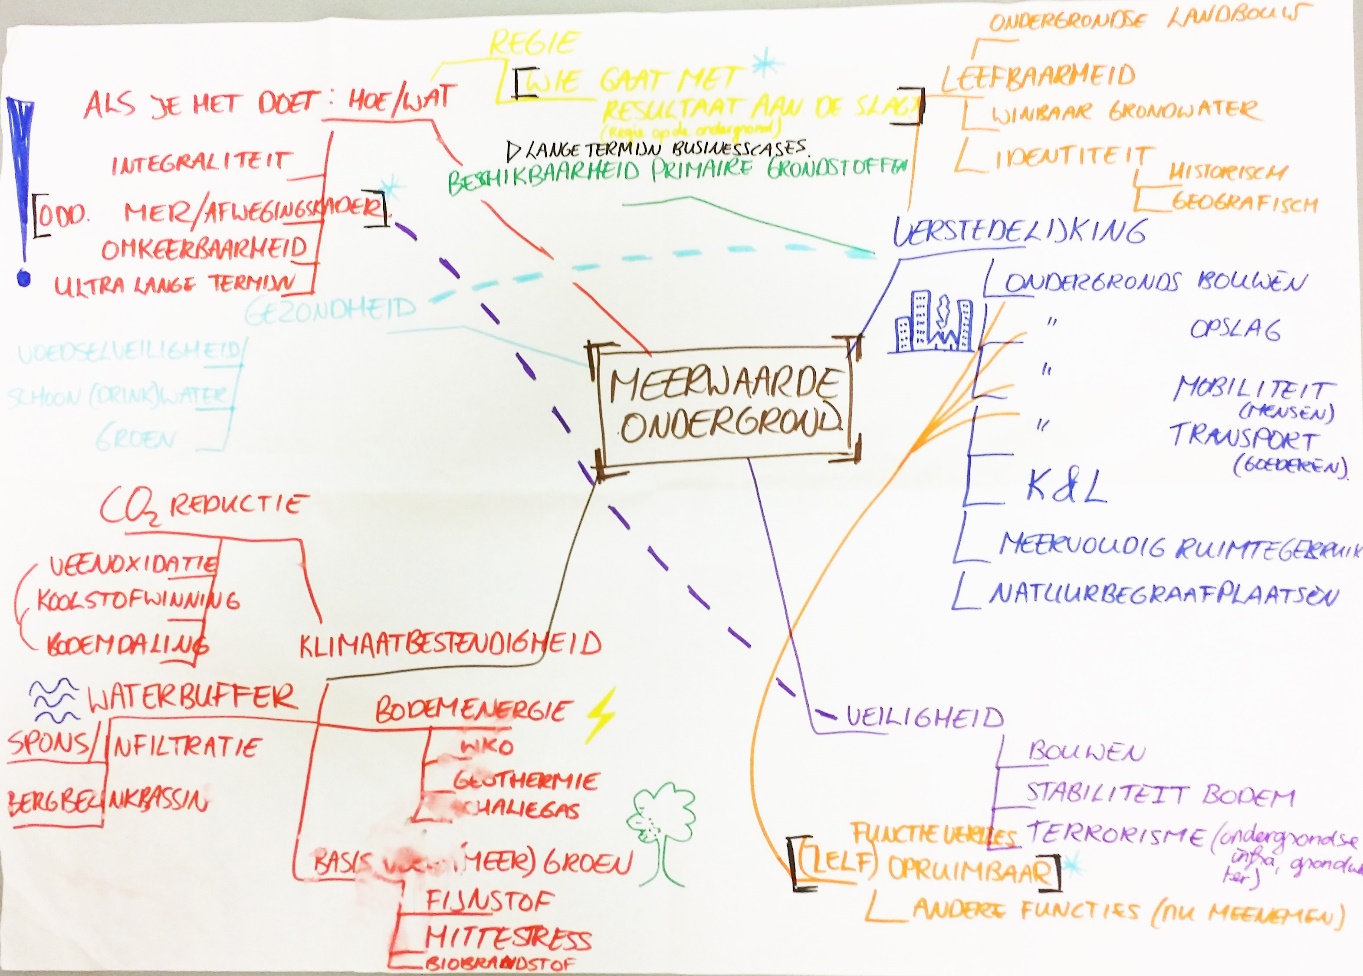 REGIE
[WIE GAAT MET
RESULTAAT AAN DE SLAG]
(regie op de ondergrond)
▷ LANGE TERMIJN BUSINESSCASES.
BESCHIKBAARHEID PRIMAIRE GRONDSTOFFEN
ALS JE HET DOET: HOE/WAT
INTEGRALITEIT
[ODD. MER/AFWEGINGSKADER]
OMKEERBAARHEID
ULTRA LANGE TERMIJN
!
GEZONDHEID
VOEDSELVEILIGHEID
SCHOON (DRINK)WATER
GROEN
ONDERGRONDSE LANDBOUW
LEEFBAARHEID
WINBAAR GRONDWATER
IDENTITEIT
HISTORISCH
GEOGRAFISCH
VERSTEDELIJKING
ONDERGRONDS BOUWEN
" OPSLAG
" MOBILITEIT
(MENSEN)
" TRANSPORT
(GOEDEREN)
K&L
MEERVOUDIG RUIMTEGEBRUIK
NATUURBEGRAAFPLAATSEN
MEERWAARDE
ONDERGROND
CO2 REDUCTIE
VEENOXIDATIE
KOOLSTOFWINNING
BODEMDALING
KLIMAATBESTENDIGHEID
WATERBUFFER
SPONS/INFILTRATIE
BERGBEZINKBASSIN
BODEMENERGIE
WKO
GEOTHERMIE
SCHALIEGAS
BASIS (MEER) GROEN
FIJNSTOF
HITTESTRESS
BIOBRANDSTOF
VEILIGHEID
BOUWEN
STABILITEIT BODEM
TERRORISME (ondergrondse
infra, grondwa
ter)
FUNCTIEVERLIES
[(ZELF) OPRUIMBAAR]
ANDERE FUNCTIES (NU MEENEMEN)